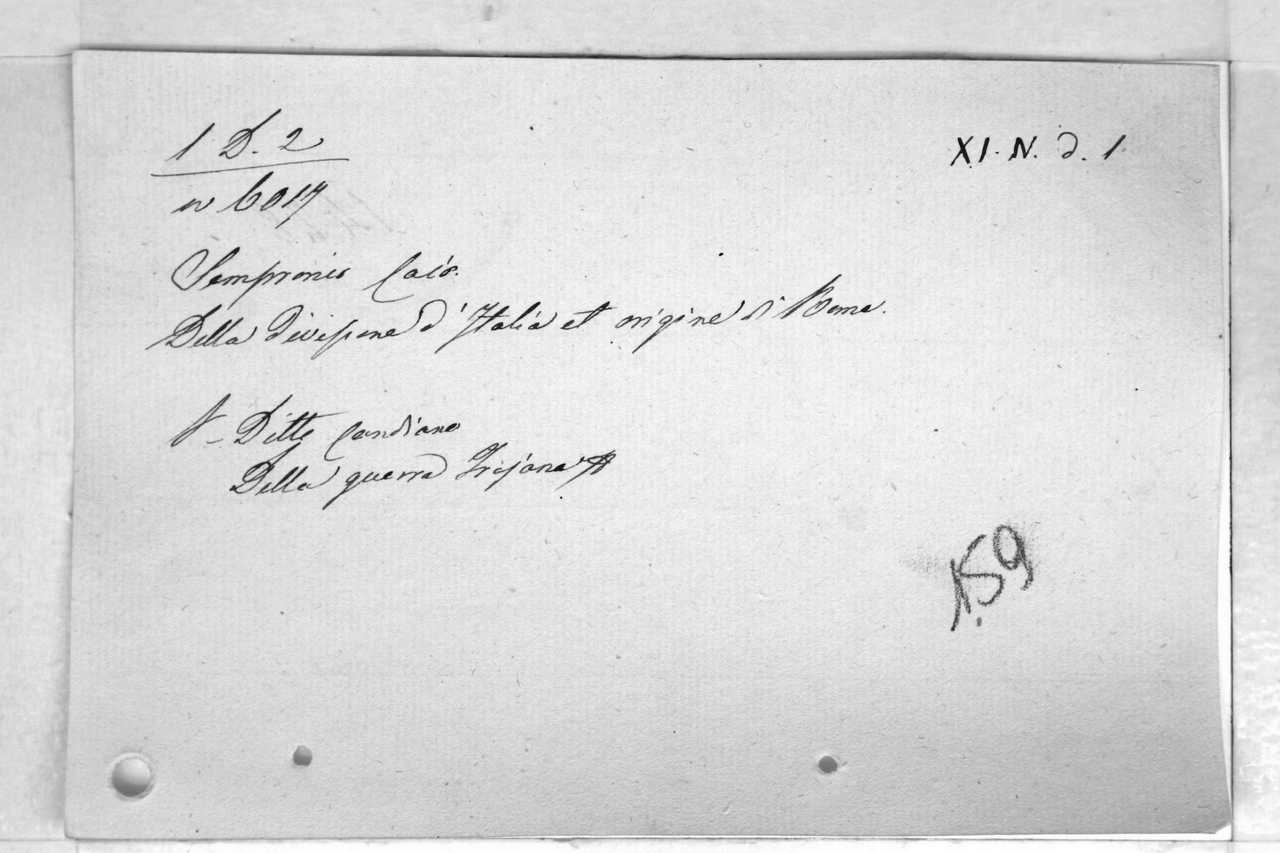 1 D. 2
XI. N. D. 1
n 6017
Sempronio Caio.
Della divisione d'Italia et origine di Roma.
V- Ditte Candiano
Della guerra Trojana
159